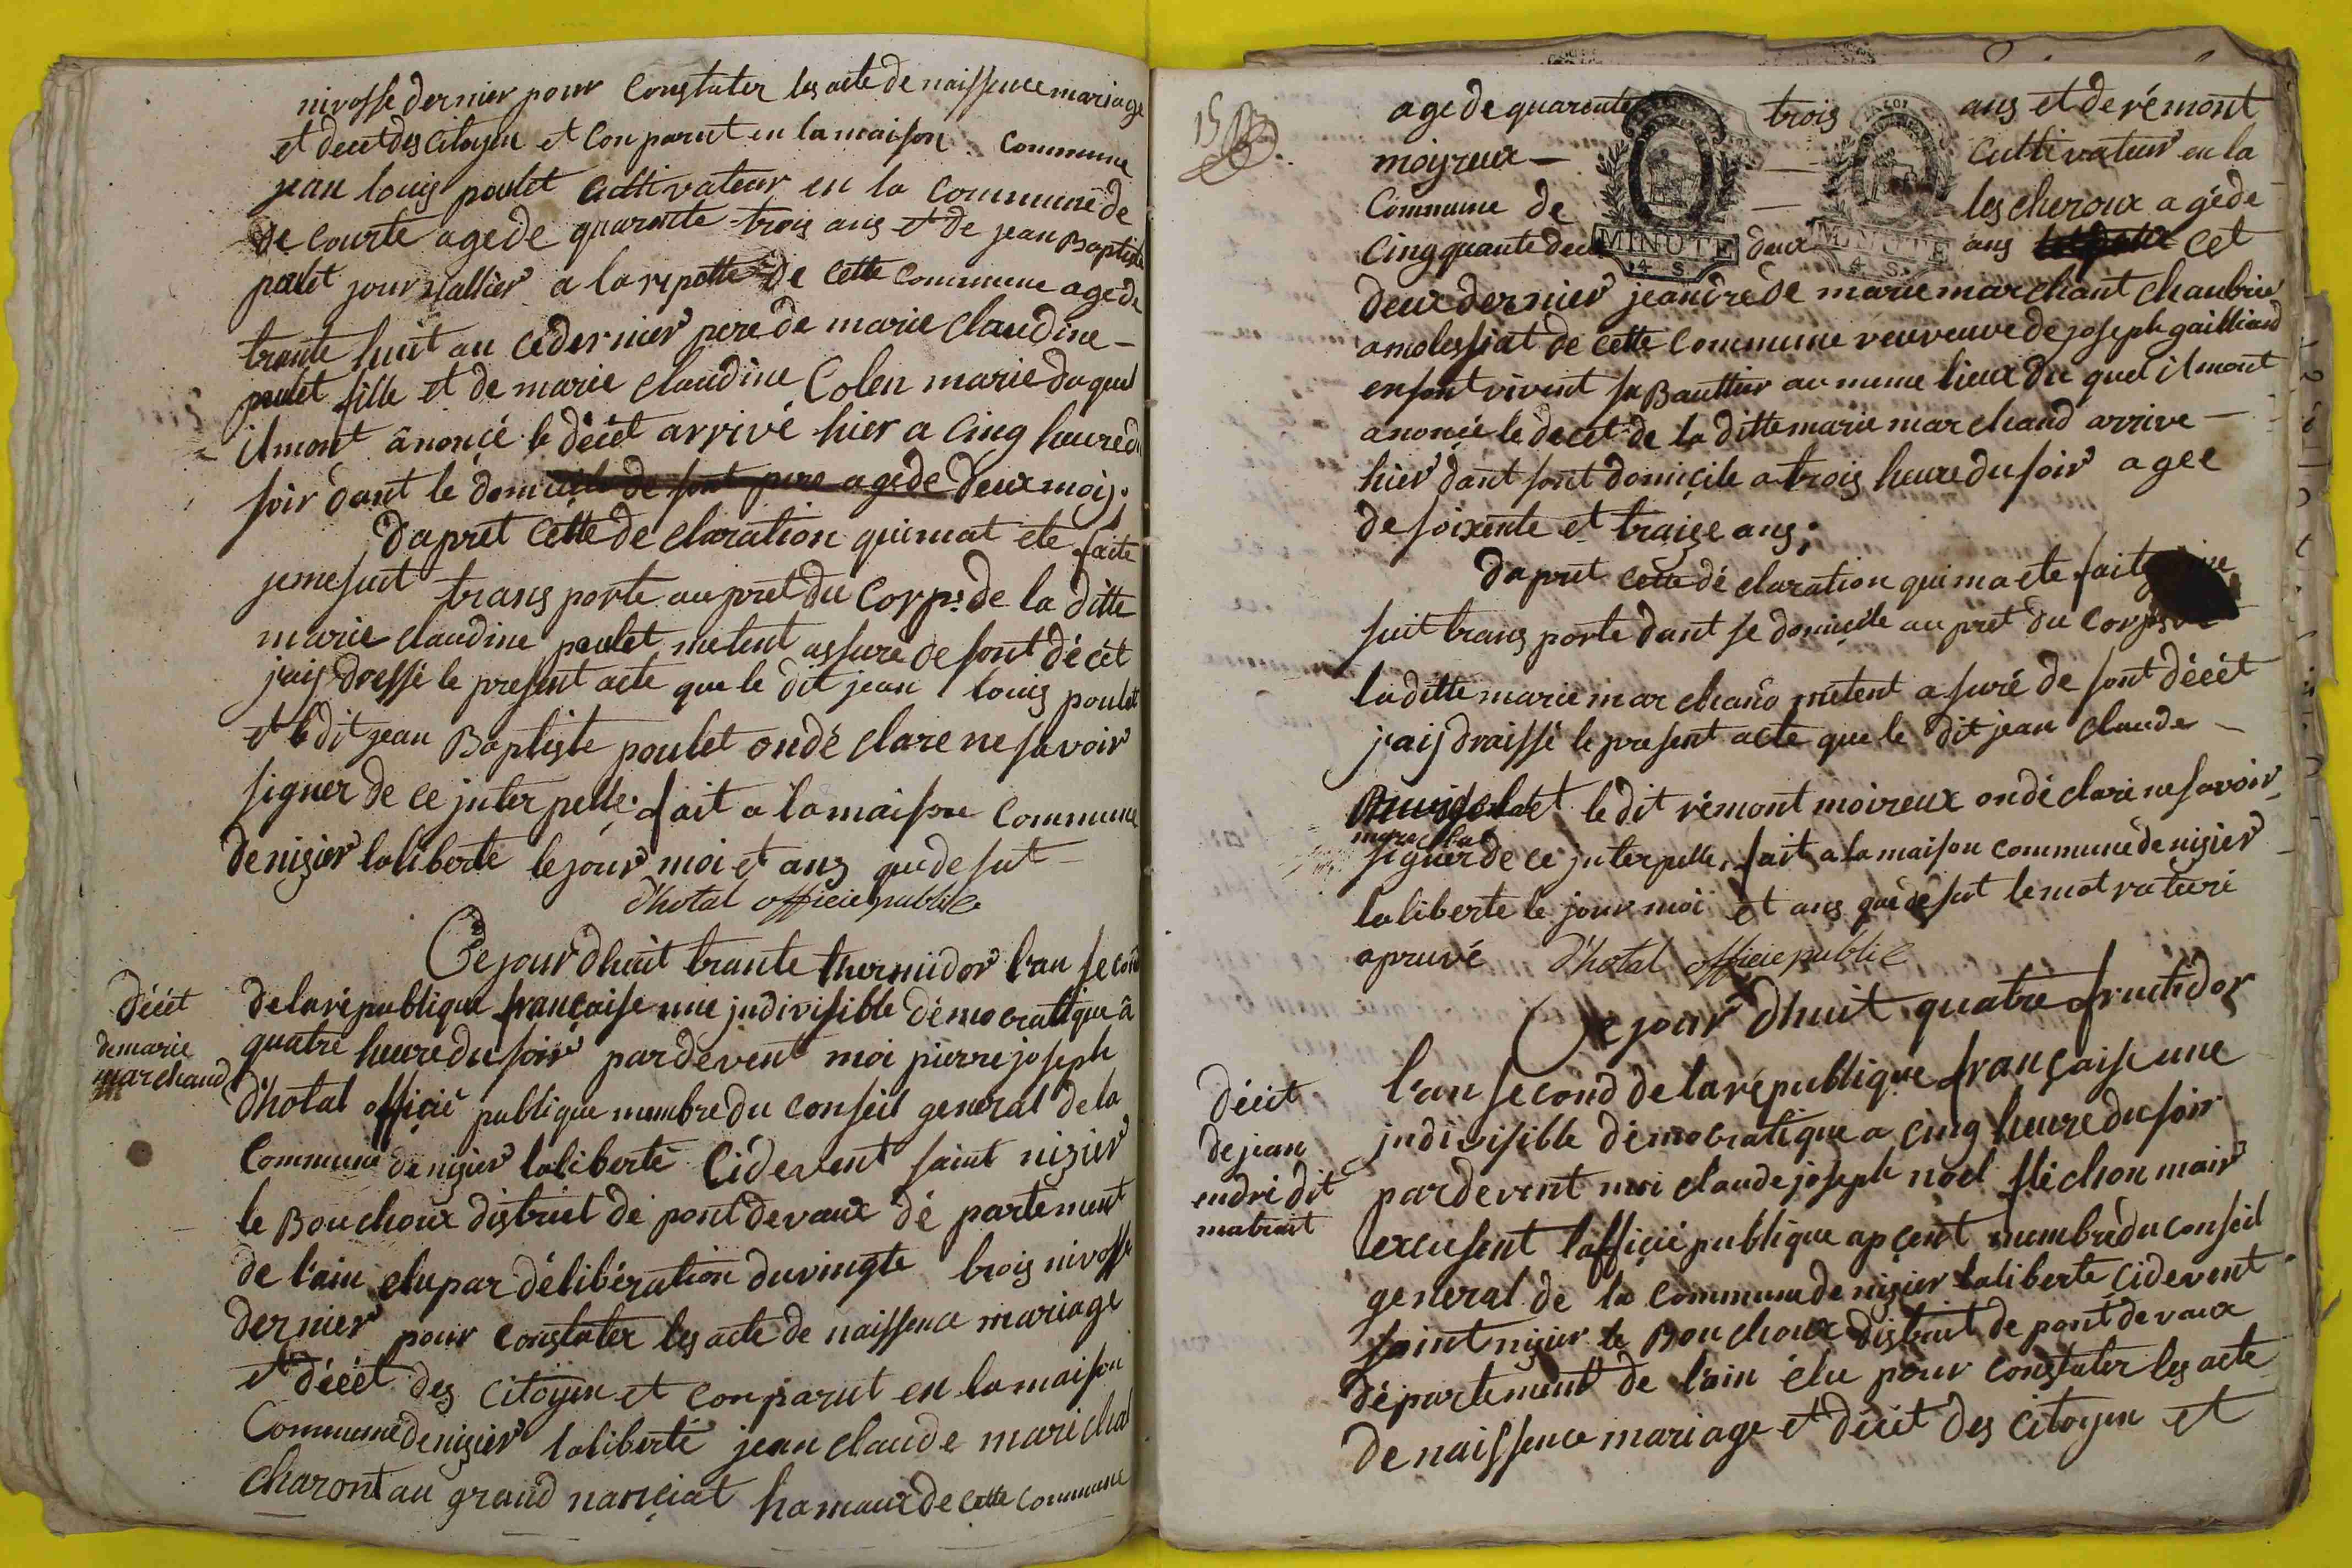 nivosse dernier pour Constater les acte de naissence mariage
et decet des Citoyen et Conparut en la maison Commune
jean louis poulet Cultivateur en la Commune de
de Courte agé de quarante trois ans et de jean Baptiste
poulet journallier a la ripotte de Cette Commune agé de
trante huit an ce dernier pere de marie claudine -
poulet fille et de marie claudine Colen marie du quel
il mont ânoncé le décet arrivé hier a Cinq heure du
soir dant le domicile de sont pere agé de deux mois;
Dapret Cette de claration qui mat ete faite
je me suit trans porte au pret du Corps de la ditte
marie claudine poulet metent assuré de sont décét
jaij dressé le present acte que le dit jean louis poulet
et le dit jean Baptiste poulet on dé claré ne savoir
signer de ce jnter pellé. fait a la maison Commune
de nizier laliberte le jour moi et ans que de sut -
D'hotal officie publile
Ce jour dhuit trante thermidor l'an second
décét
de marie
marchand
de la république française une jndivisible démocratique â
quatre heure du soir par devent moi pierre joseph
D'hotal officié publique membre du Conseil general de la
Commune de nizier laliberté Cidevent saint nizier
le Bouchoux district de pont devaux dé partement
de l'ain elu par délibération du vingte trois nivosse
dernier pour constater les acte de naissence mariage
et décét des Citoyen et conparut en la maison
Commune de nizier laliberté jean claude marichal
Charont au grand nanciat hamaux de cette Commune
15
agé de quarente trois ans et de rémont
moyreux — — Cultivateur en la
Commune de — les cheroux agé de
Cinquante deux deux ans cet
MINUTE MINUTE
4 S. 4 S.
deux dernier jeandre de marie marchant chanbrier
a molessiat de cette Commune veuveuve de joseph gailliand
ensont vivent sa Bauttier au meme lieux du quel il mont
anoncée le decet de la ditte marie marchand arrive -
hier dant sont domicile a trois heure du soir agee
de soixente et traize ans;
dapret cette dé claration qui ma ete faite
suit trans porte dant se domicile au pret du Corps de
la ditte marie marchand metent a suré de sont décét
j'aij draissé le present acte que le dit jean claude -
et le dit rémont moireux on dé claré ne savoir
marechal
signer de ce jnterpelle, fait a la maison commune de nizier
laliberte le jour moi et ans que de sut le mot raturé
apruvé D'hotal officie publile
Ce jour dhuit quatre fructidor
Décét
de jean
endré dit
mabrait
l'an second de la république française une
jndivisible démocratique a cinq heure du soir
par devent moi claude joseph noel fléchon mair
excusent l'officié publique apcent membre du conseil
general de la Commune de nizier laliberte Cidevent
saint nizier le Bouchoux district de pont devaux
département de l'ain élu pour constater les acte
de naissence mariage et décét des Citoyen et